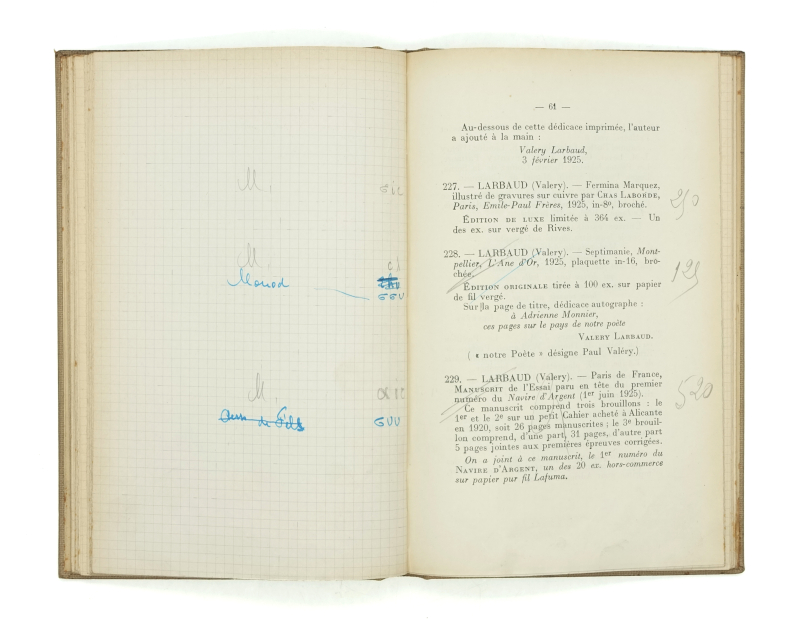 M.
M.
Monod
M.
— 61 —
Au-dessous de cette dédicace imprimée, l'auteur
a ajouté à la main :
Valery Larbaud,
3 février 1925.
227. — LARBAUD (Valery). — Fermina Marquez,
illustré de gravures sur cuivre par Chas Laborde,
Paris, Emile-Paul Frères, 1925, in-8º, broché.
250
Édition de luxe limitée à 364 ex. — Un
des ex. sur vergé de Rives.
228. — LARBAUD (Valery). — Septimanie, Mont-
pellier, L'Ane d'Or, 1925, plaquette in-16, bro-
chée.
125
Édition originale tirée à 100 ex. sur papier
de fil vergé.
Sur la page de titre, dédicace autographe :
à Adrienne Monnier,
ces pages sur le pays de notre poète
Valery Larbaud.
( « notre Poète » désigne Paul Valéry.)
229. — LARBAUD (Valery). — Paris de France,
Manuscrit de l'Essai paru en tête du premier
numéro du Navire d'Argent (1er juin 1925).
520
Ce manuscrit comprend trois brouillons : le
1er et le 2e sur un petit Cahier acheté à Alicante
en 1920, soit 26 pages manuscrites ; le 3e brouil-
lon comprend, d'une part, 31 pages, d'autre part
5 pages jointes aux premières épreuves corrigées.
On a joint à ce manuscrit, le 1er numéro du
Navire d'Argent, un des 20 ex. hors-commerce
sur papier pur fil Lafuma.